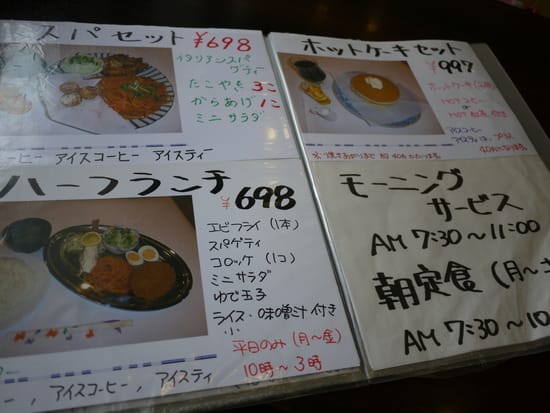 スパセット ¥698
イタリアンスパ
ゲティー
たこやき 3こ
からあげ 1こ
ミニサラダ
アイスコーヒー アイスティ
ハーフランチ
¥698
エビフライ (1本)
スパゲティ
コロッケ (1コ)
ミニサラダ
ゆで玉子
ライス・味噌汁付き
小
平日のみ (月~金)
10時~3時
アイスコーヒー, アイスティ
ホットケーキセット
¥997
HOTコーヒー
HOT紅茶付き
アイスコーヒー
アイスティは、プラス
モーニング
サービス
AM 7:30~11:00
朝定食 (月~
AM 7:30~10